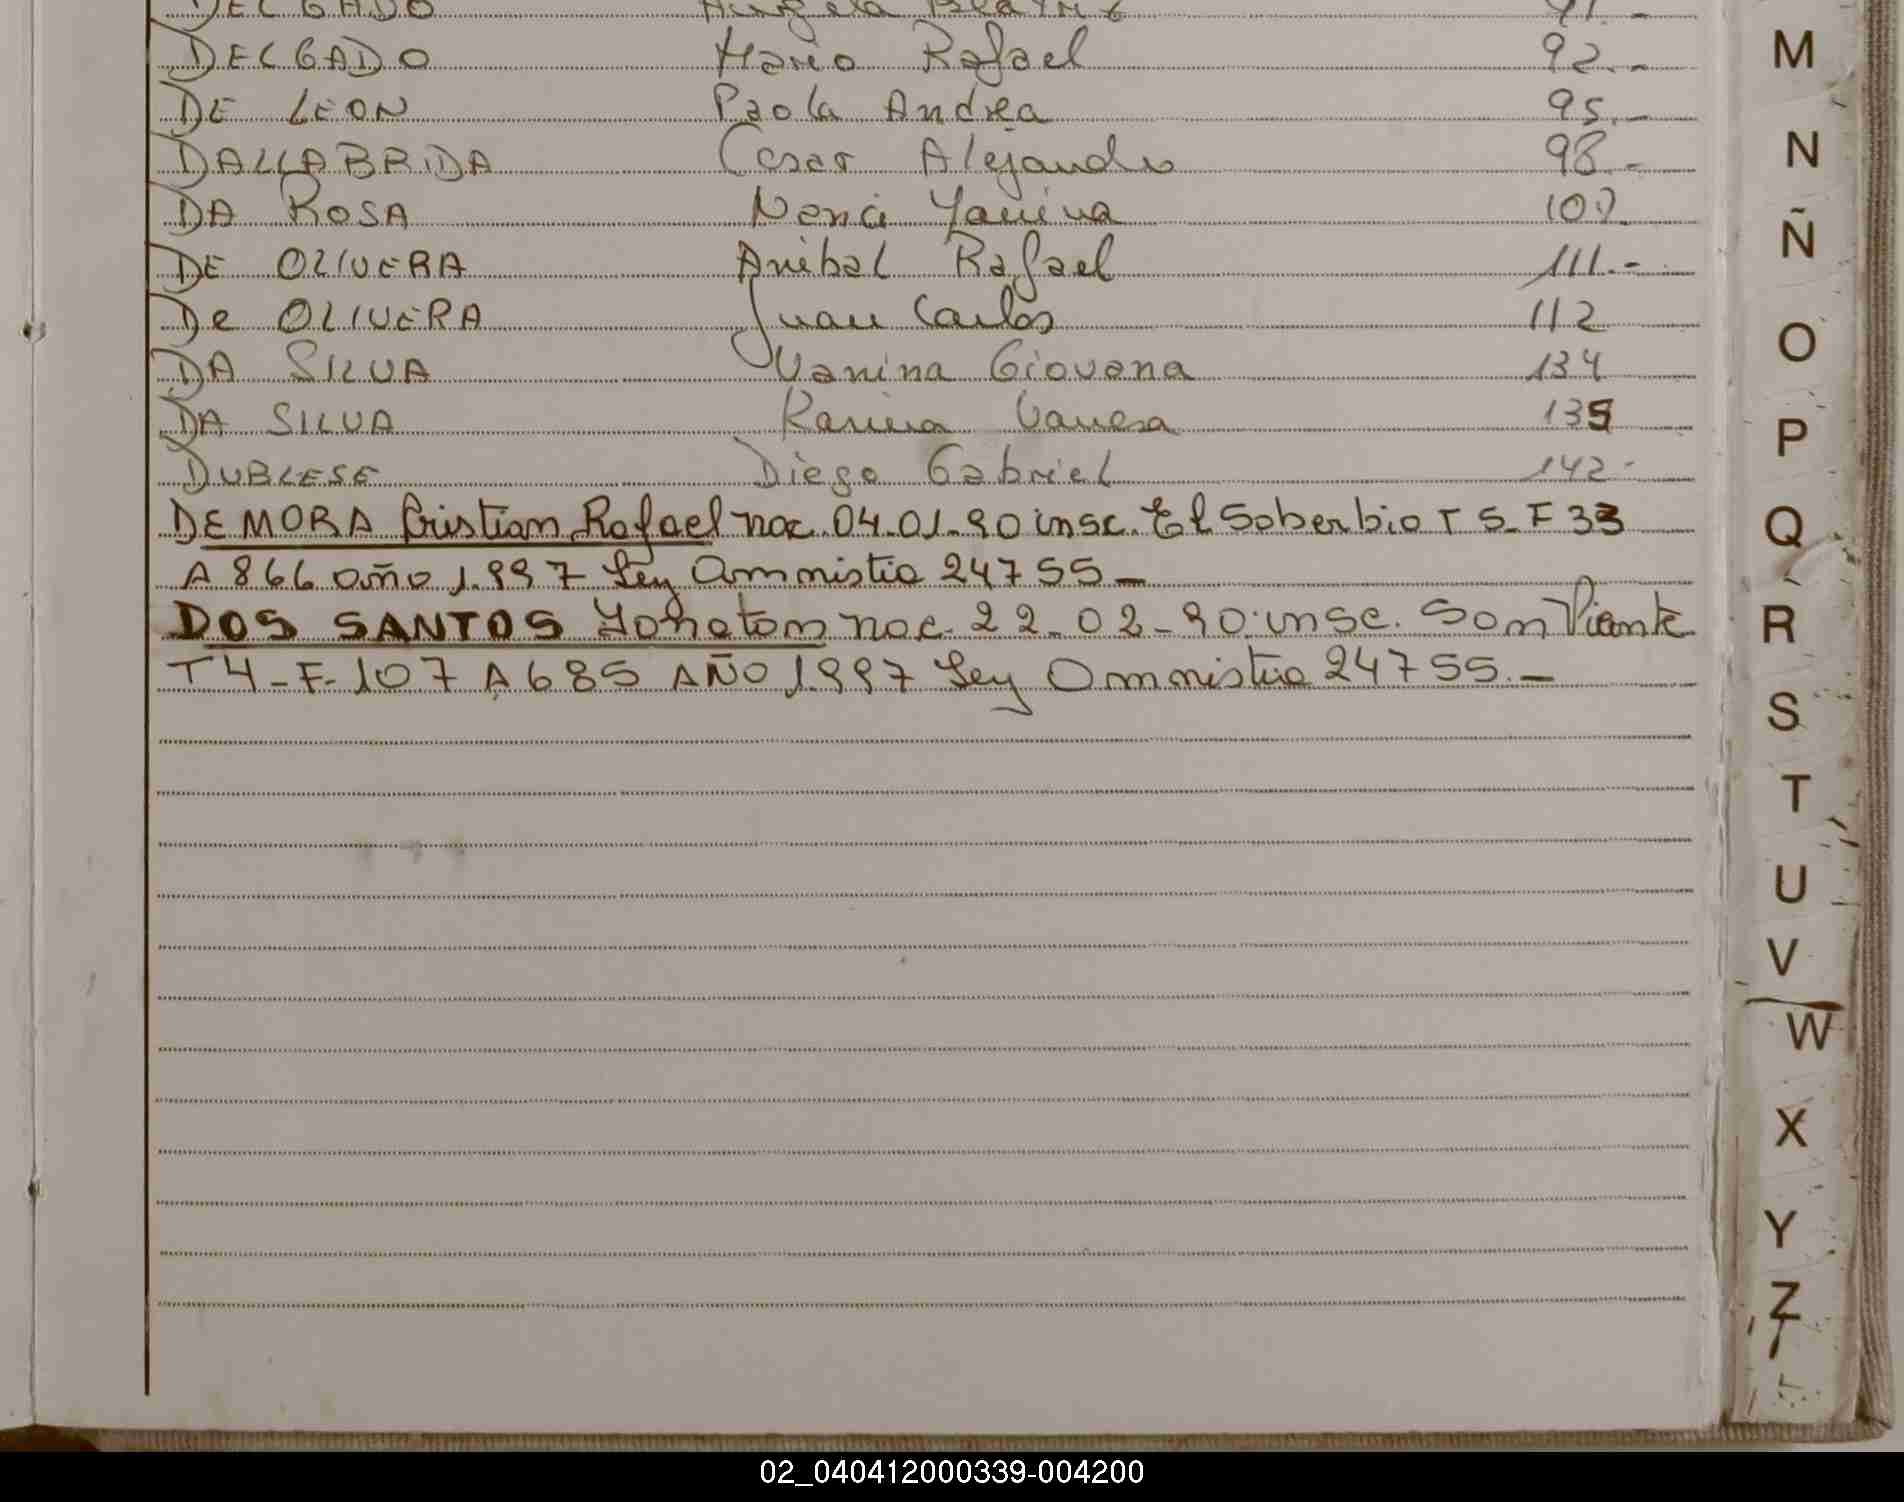 DELGADO Angela Beatriz 91.-
DELGADO Mario Rafael 92.-
DE LEON Paola Andrea 95.-
DALLABRIDA Cesar Alejandro 98.-
DA ROSA Yanina
DE OLIVERA Anibal Rafael 111.-
De OLIVERA Juan Carlos 112
DA SILVA Vanina Giovana 134
DA SILVA Karina Vanesa 135
DUBLESE Diego Gabriel 142-
DE MORA Cristian Rafael nac. 04.01-90 insc. El Soberbio T 5-F 33
A 866 año 1.997 Ley Ammistia 24755-
DOS SANTOS Yohatan nac. 22-02-90 insc. San Vicente
T4-F-107 A 685 AÑO 1.997 Ley Ammistia 24755.-
M
N
Ñ
O
P
Q
R
S
T
U
V
W
X
Y
Z
02_040412000339-004200